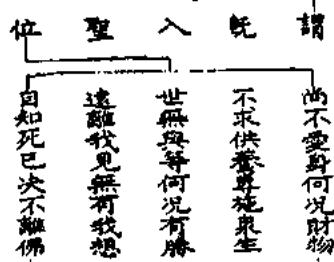 謂既入聖位
尚不愛身何況財物
不求供養專施衆生
世無與等何況有勝
遠離我見無有我想
自知死已决不離佛